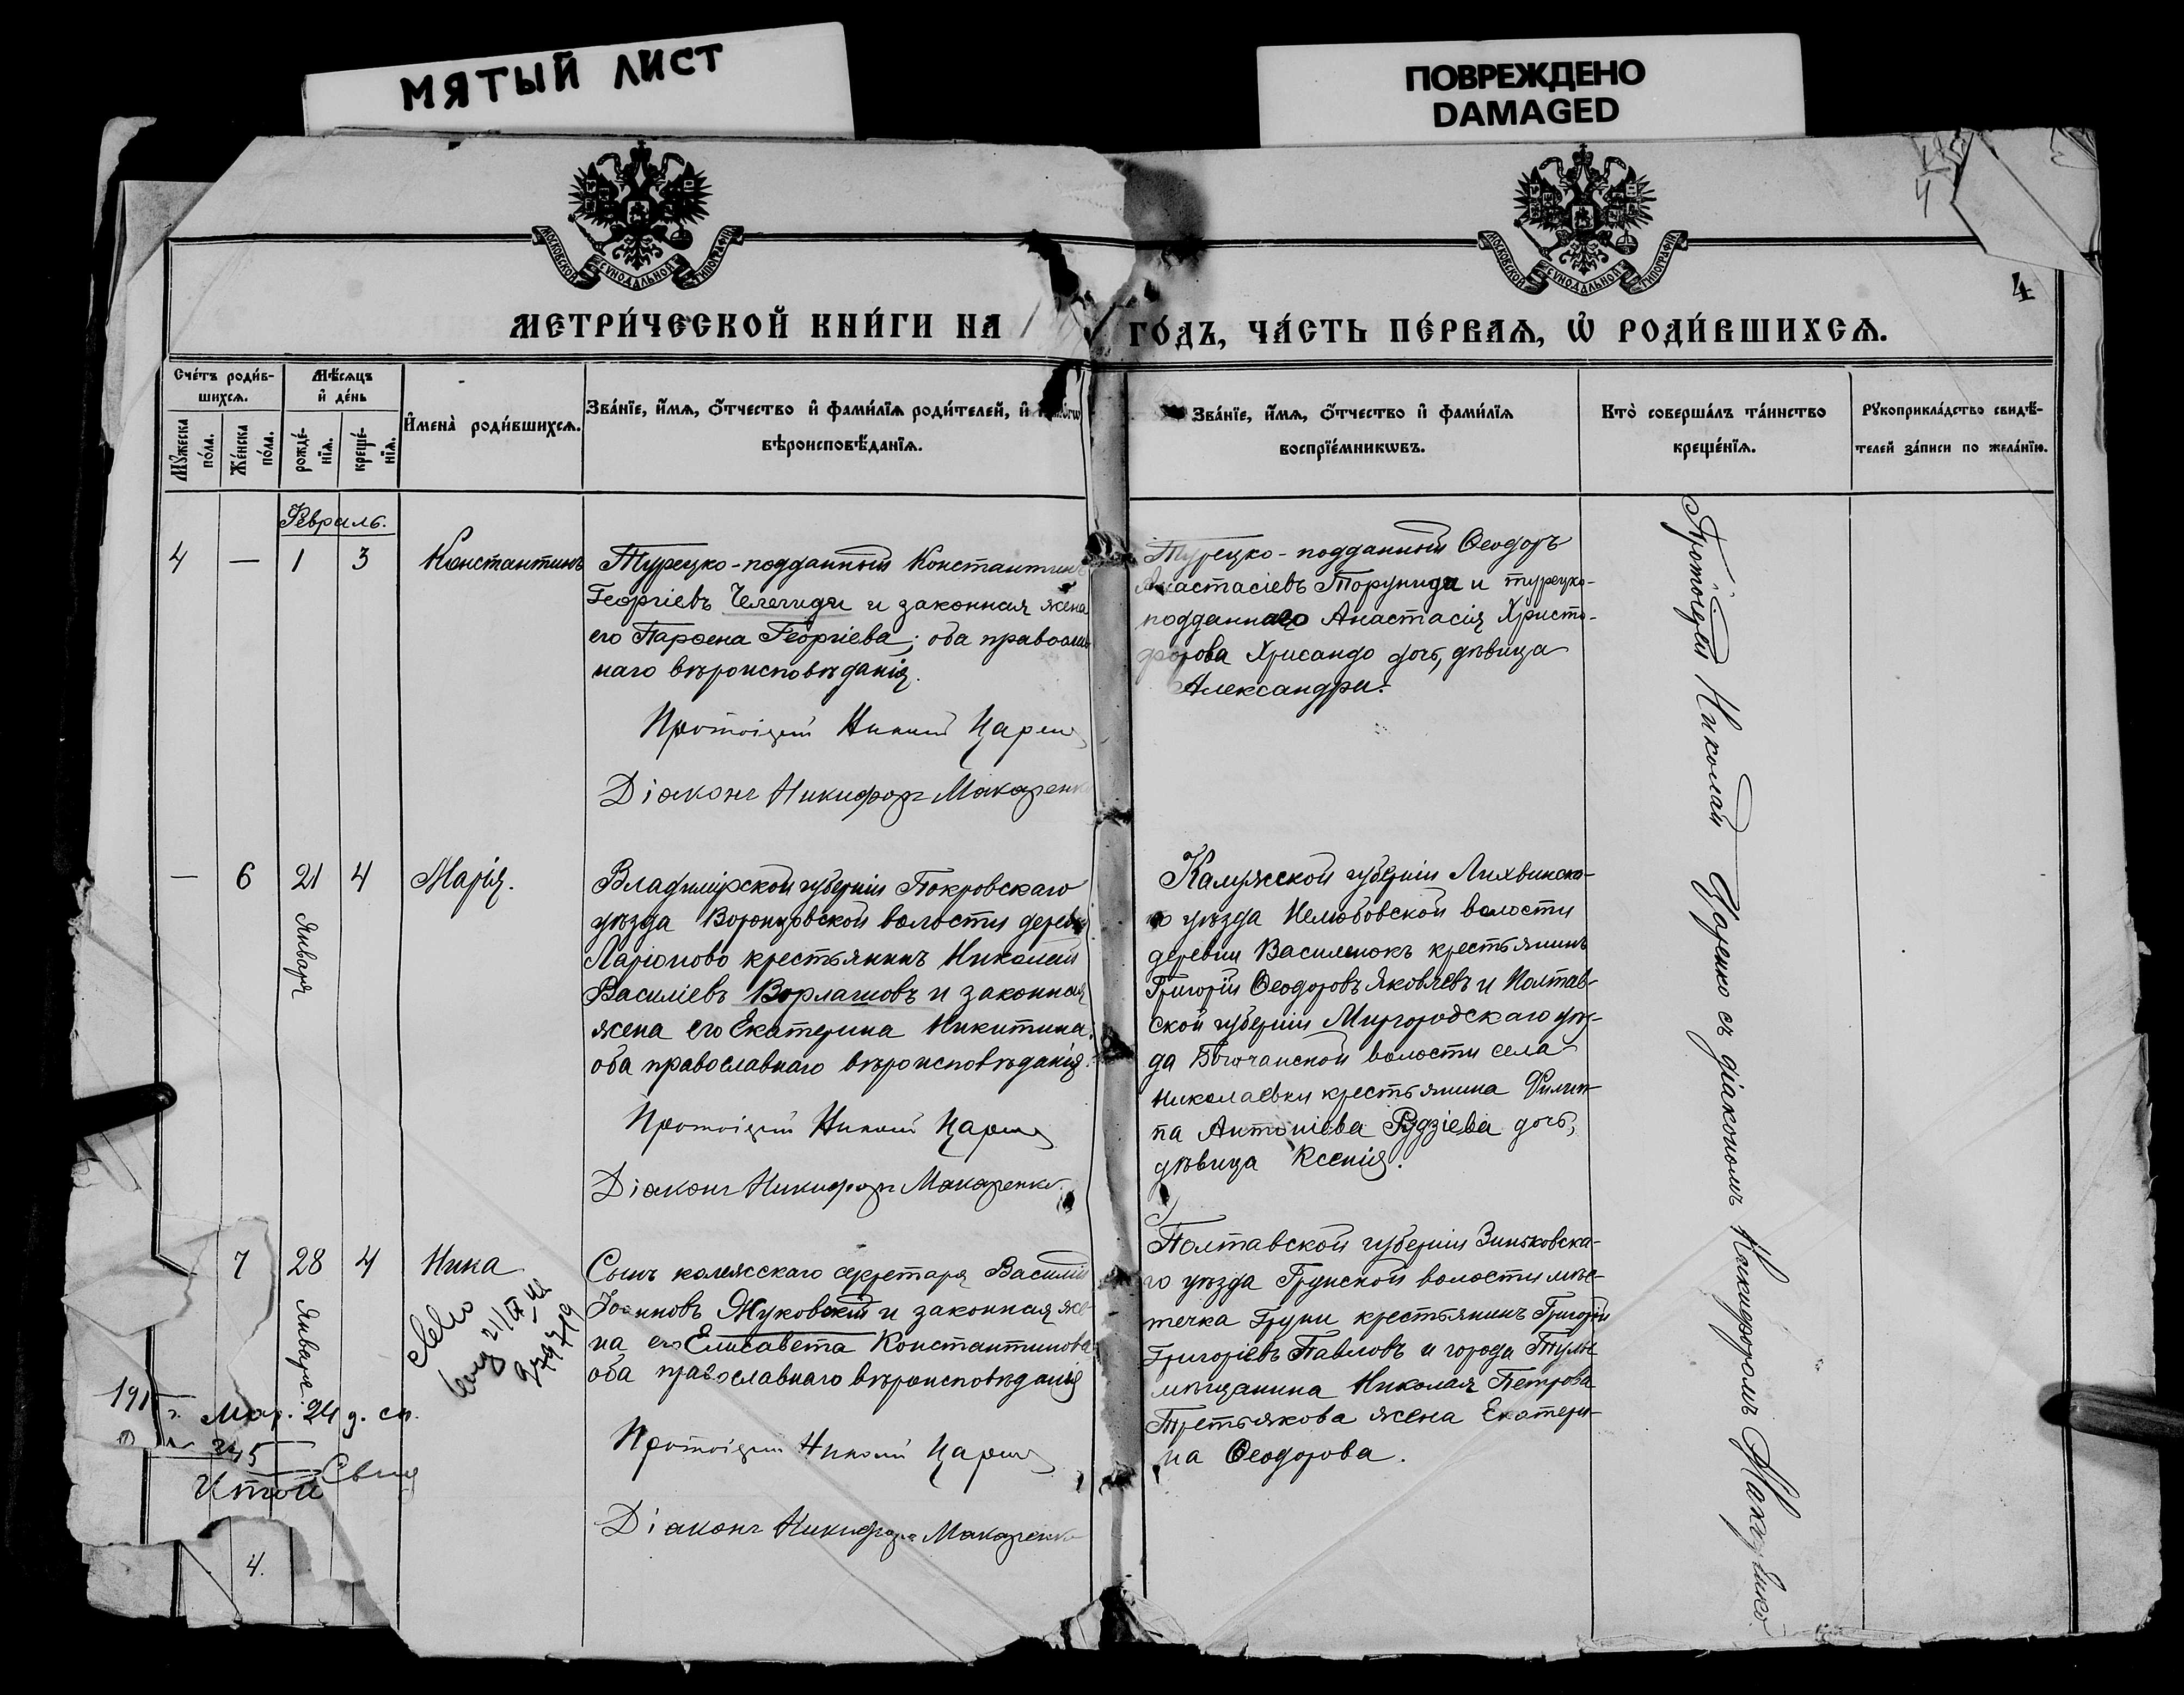 МЯТЫЙ ЛИСТ
ПОВРЕЖДЕНО
DAMAGED
МОСКОВСКОЙ СѴНОДАЛЬНОЙ ТИПОГРАФІИ
МОСКОВСКОЙ СѴНОДАЛЬНОЙ ТИПОГРАФІИ
4
4
МЕТРИ́ЧЕСКОЙ КНИ́ГИ НА
ГО́ДЪ, ЧА́СТЬ ПЕ́РВАѦ, Ѡ҆ РОДИ́ВШИХСѦ.
Сче́тъ роди́в-
шихсѧ.
Мѣ́сѧцъ
и҆ де́нь
Мꙋ́жеска
по́ла.
Же́нска
по́ла.
рожде́-
нїѧ.
креще́-
нїѧ.
И҆мена̀ роди́вшихсѧ.
Зва́нїе, и҆́мѧ, о҆́тчество и҆ фами́лїѧ роди́телей, и҆
вѣроисповѣ́данїѧ.
Зва́нїе, и҆́мѧ, о҆́тчество и҆ фами́лїѧ
воспрїе́мникѡвъ.
Кто̀ соверша́лъ та́инство
креще́нїѧ.
Рꙋкоприкла́дство свидѣ́-
телей за́писи по жела́нїю.
Февраль.
4 — 1 3 Константинъ
Турецко-подданный Константинъ
Георгіевъ Челегиди и законная жена
его Парѳена Георгіева; оба православ-
наго вѣроисповѣданія.
Протоіерей Николай Царенко
Діаконъ Никифоръ Макаренко
Турецко-подданный Ѳеодоръ
Анастасіевъ Торуниди и турецко-
подданнаго Анастасія Христо-
форова Хрисандо дочь, дѣвица
Александра.
— 6 21 4 Марія.
Января
Владимірской губерніи Покровскаго
уѣзда Воронцовской волости деревни
Ларіоново крестьянинъ Николай
Василіевъ Ворлашовъ и законная
жена его Екатерина Никитина
оба православнаго вѣроисповѣданія.
Протоіерей Николай Царенко
Діаконъ Никифоръ Макаренко
Калужской губерніи Лихвинска-
го уѣзда Нелюбовской волости
деревни Василенокъ крестьянинъ
Григорій Ѳеодоровъ Яковлевъ и Полтав-
ской губерніи Миргородскаго уѣз-
да волости села
Николаевки крестьянина Филип-
па Антоніева Рудзіева дочь,
дѣвица Ксенія.
7 28 4 Нина
Января
Сынъ колежскаго секретаря Василій
Іоанновъ Жуковскій и законная же-
на его Елисавета Константинова
оба православнаго вѣроисповѣданія
Протоіерей Николай Царенко
Діаконъ Никифоръ Макаренко
Полтавской губерніи Зиньковска-
го уѣзда Грунской волости мѣс-
течка Груни крестьянинъ Григорій
Григоріевъ Павловъ и города Тулы
мѣщанина Николая Петрова
Третьякова жена Екатери-
на Ѳеодорова.
Протоіерей Николай Царенко съ діакономъ Никифоромъ Макаренко.
191
г. Мар. 24 д. сп.
245
4.